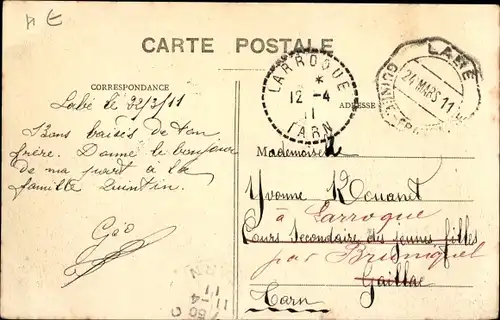 CARTE POSTALE
CORRESPONDANCE
ADRESSE
LARROQUE
*
12 -4
11
TARN
LABÉ
24 MARS 11
GUINÉE FRANÇAISE
Labé le 22/3/11
Bons baisers de ton
frère. Donne le bonjour
de ma part à la
famille Quintin.
Géo
Mademoiselle
Yvonne Rouanet
à Larroque
Cours Secondaire des jeunes filles
par Bruniquel
Gaillac
Tarn
11-4